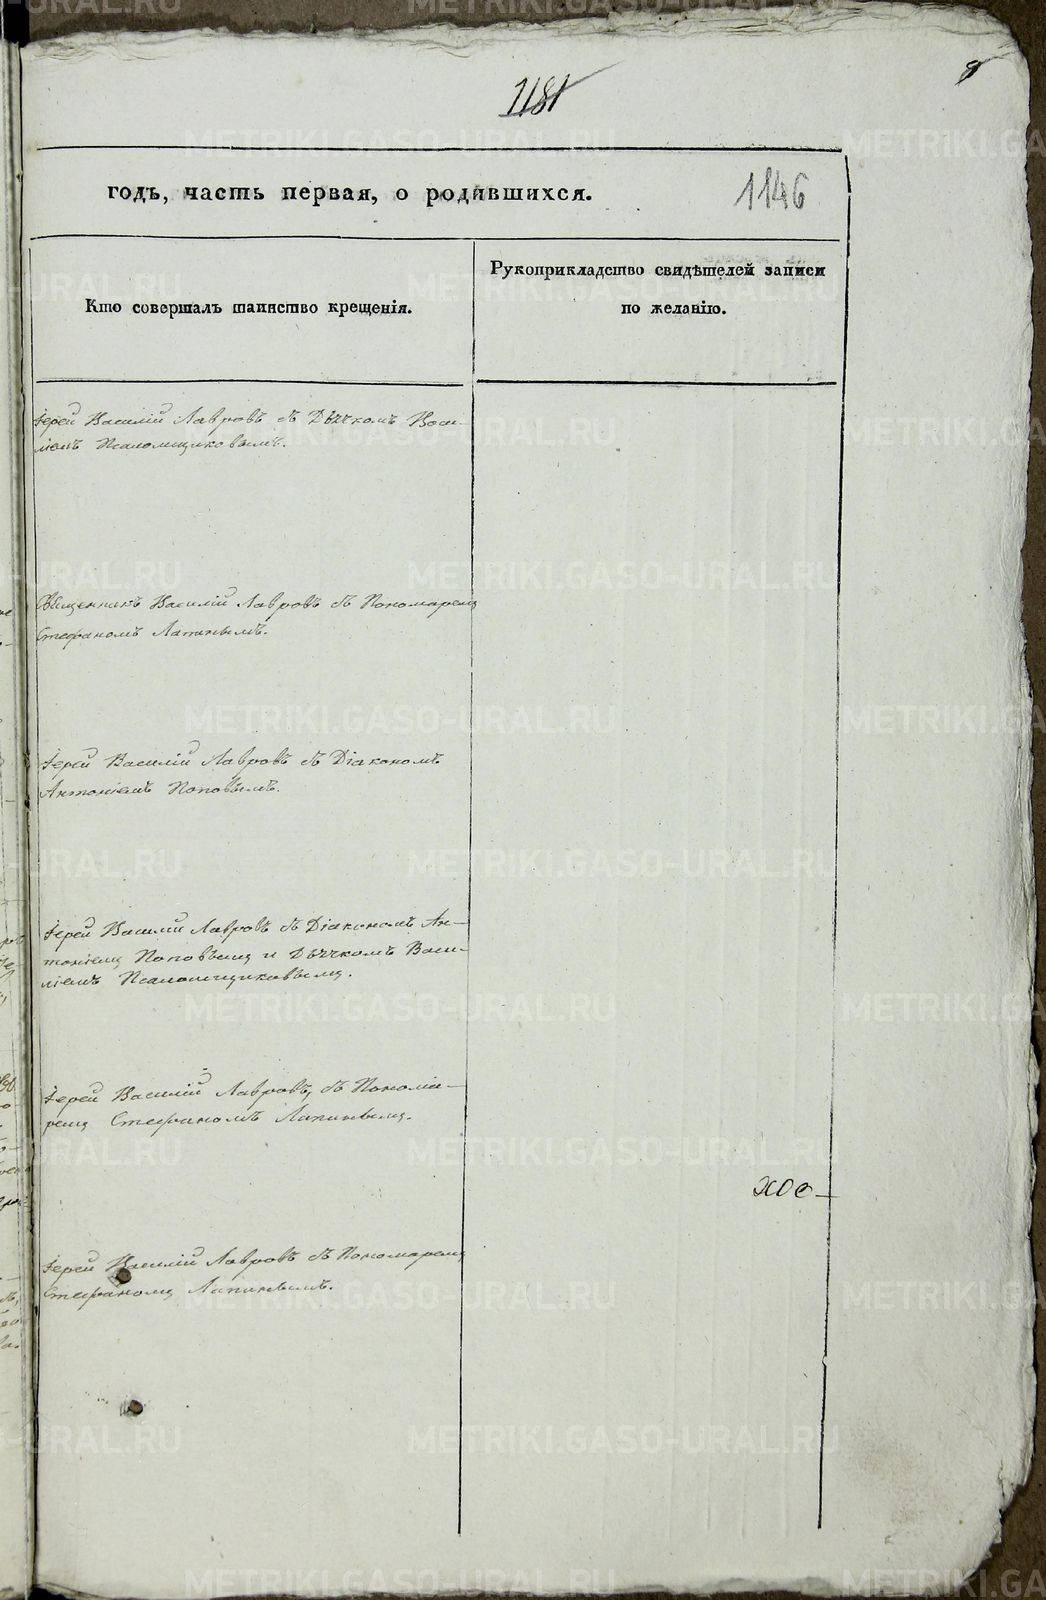 1181
8
годъ, часть первая, о родившихся.
1146
Кто совершалъ таинство крещенія.
Рукоприкладство свидѣтелей записи
по желанію.
Іерей Василій Лавровъ съ Дьячкомъ Васи-
ліемъ Псаломщиковымъ.
Священникъ Василій Лавровъ съ Пономаремъ
Стефаномъ Лапинымъ.
Іерей Василій Лавровъ съ Діакономъ
Антоніемъ Поповымъ.
Іерей Василій Лавровъ съ Діакономъ Ан-
тоніемъ Поповымъ и Дьячкомъ Васи-
ліемъ Псаломщиковымъ.
Іерей Василій Лавровъ, съ Понома-
ремъ Стефаномъ Лапинымъ.
Іерей Василій Лавровъ съ Пономаремъ
Стефаномъ Лапинымъ.
METRIKI.GASO-URAL.RU